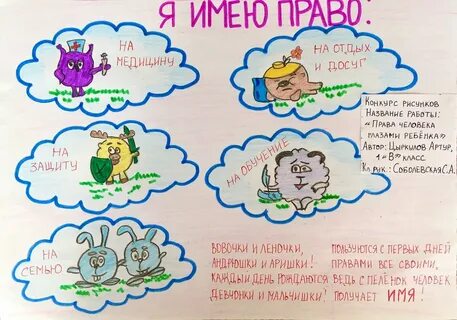 Я ИМЕЮ ПРАВО:
НА
МЕДИЦИНУ
НА ОТДЫХ
И ДОСУГ
НА
ЗАЩИТУ
НА ОБУЧЕНИЕ
НА
СЕМЬЮ
Конкурс рисунков
Название работы:
"Права человека
глазами ребёнка"
Автор: Цыркилов Артур,
1 "В" класс
Кл.рук.: Соболевская С.А.
ВОВОЧКИ И ЛЕНОЧКИ,
АНДРЮШКИ И АРИШКИ!
КАЖДЫЙ ДЕНЬ РОЖДАЮТСЯ
ДЕВЧОНКИ И МАЛЬЧИШКИ!
ПОЛЬЗУЮТСЯ С ПЕРВЫХ ДНЕЙ
ПРАВАМИ ВСЕ СВОИМИ,
ВЕДЬ С ПЕЛЁНОК ЧЕЛОВЕК
ПОЛУЧАЕТ ИМЯ!